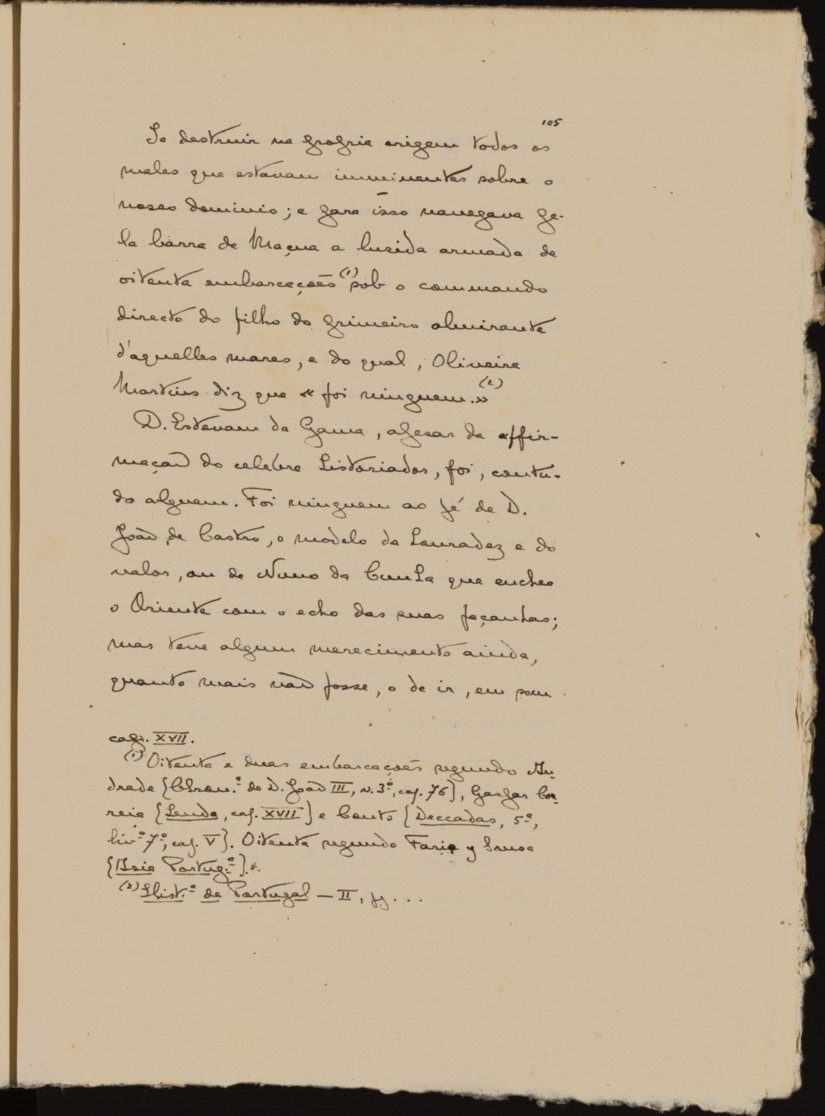 105
Se destruir na propria origem todos os
males que estavam imminentes sobre o
nosso dominio; e para isso navegava pe-
la barra de Maçua a luzida armada de
oitenta embarcações (1) sob o commando
directo do filho do primeiro almirante
d'aquelles mares, e do qual, Oliveira
Martins diz que « foi ninguem.» (2)
D. Estevam da Gama, apesar da affir-
mação do celebre historiador, foi, comtu-
do alguem. Foi ninguem ao pé de D.
João de Castro, o modelo da honradez e do
valor, ou de Nuno da Cunha que encheo
o Oriente com o echo das suas façanhas;
mas teve algum merecimento ainda,
quanto mais não fosse, o de ir, em som
cap. XVII.
(1) Oitenta e duas embarcações segundo An-
drade (Chron.ª de D. João III, v. 3º, cap. 76), Gaspar Cor-
reia (Lenda, cap. XVII) e Couto (Deccadas, 5ª,
liv.º 7º, cap. V). Oitenta segundo Faria y Sousa
(Asia Portug.ª).
(2) Hist.ª de Portugal – II, pg...